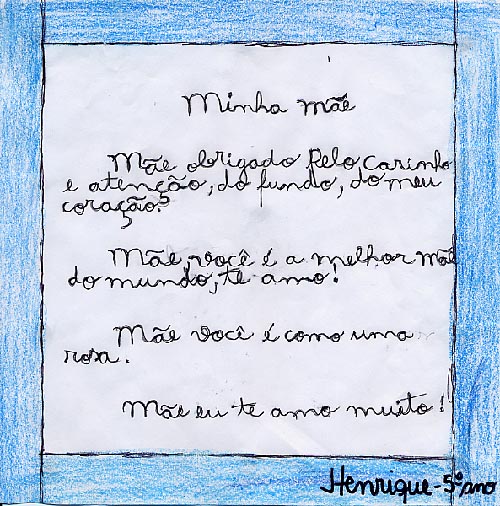 Minha mãe
Mãe obrigado Pelo Carinho
e atenção, do fundo, do meu
coração?
Mãe, você é a melhor mãe
do mundo, te amo!
Mãe você é como uma
rosa.
Mãe eu te amo muito!
Henrique - 5º ano